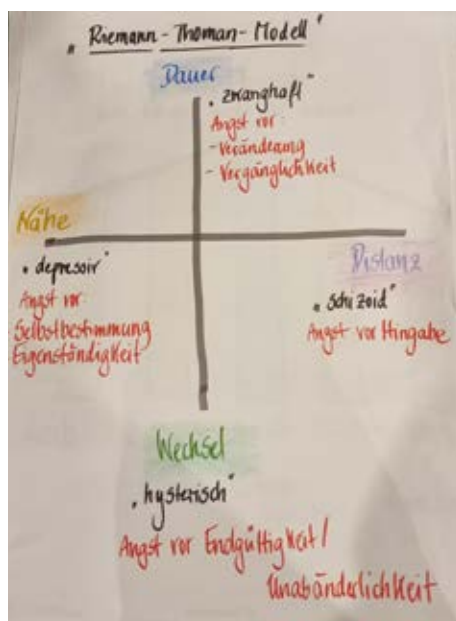 "Riemann-Thoman-Modell"
Dauer
"zwanghaft"
Angst vor:
- Veränderung
- Vergänglichkeit
Nähe
"depressiv"
Angst vor:
Selbstbestimmung
Eigenständigkeit
Distanz
"schizoid"
Angst vor Hingabe
Wechsel
"hysterisch"
Angst vor Endgültigkeit/
Unabänderlichkeit